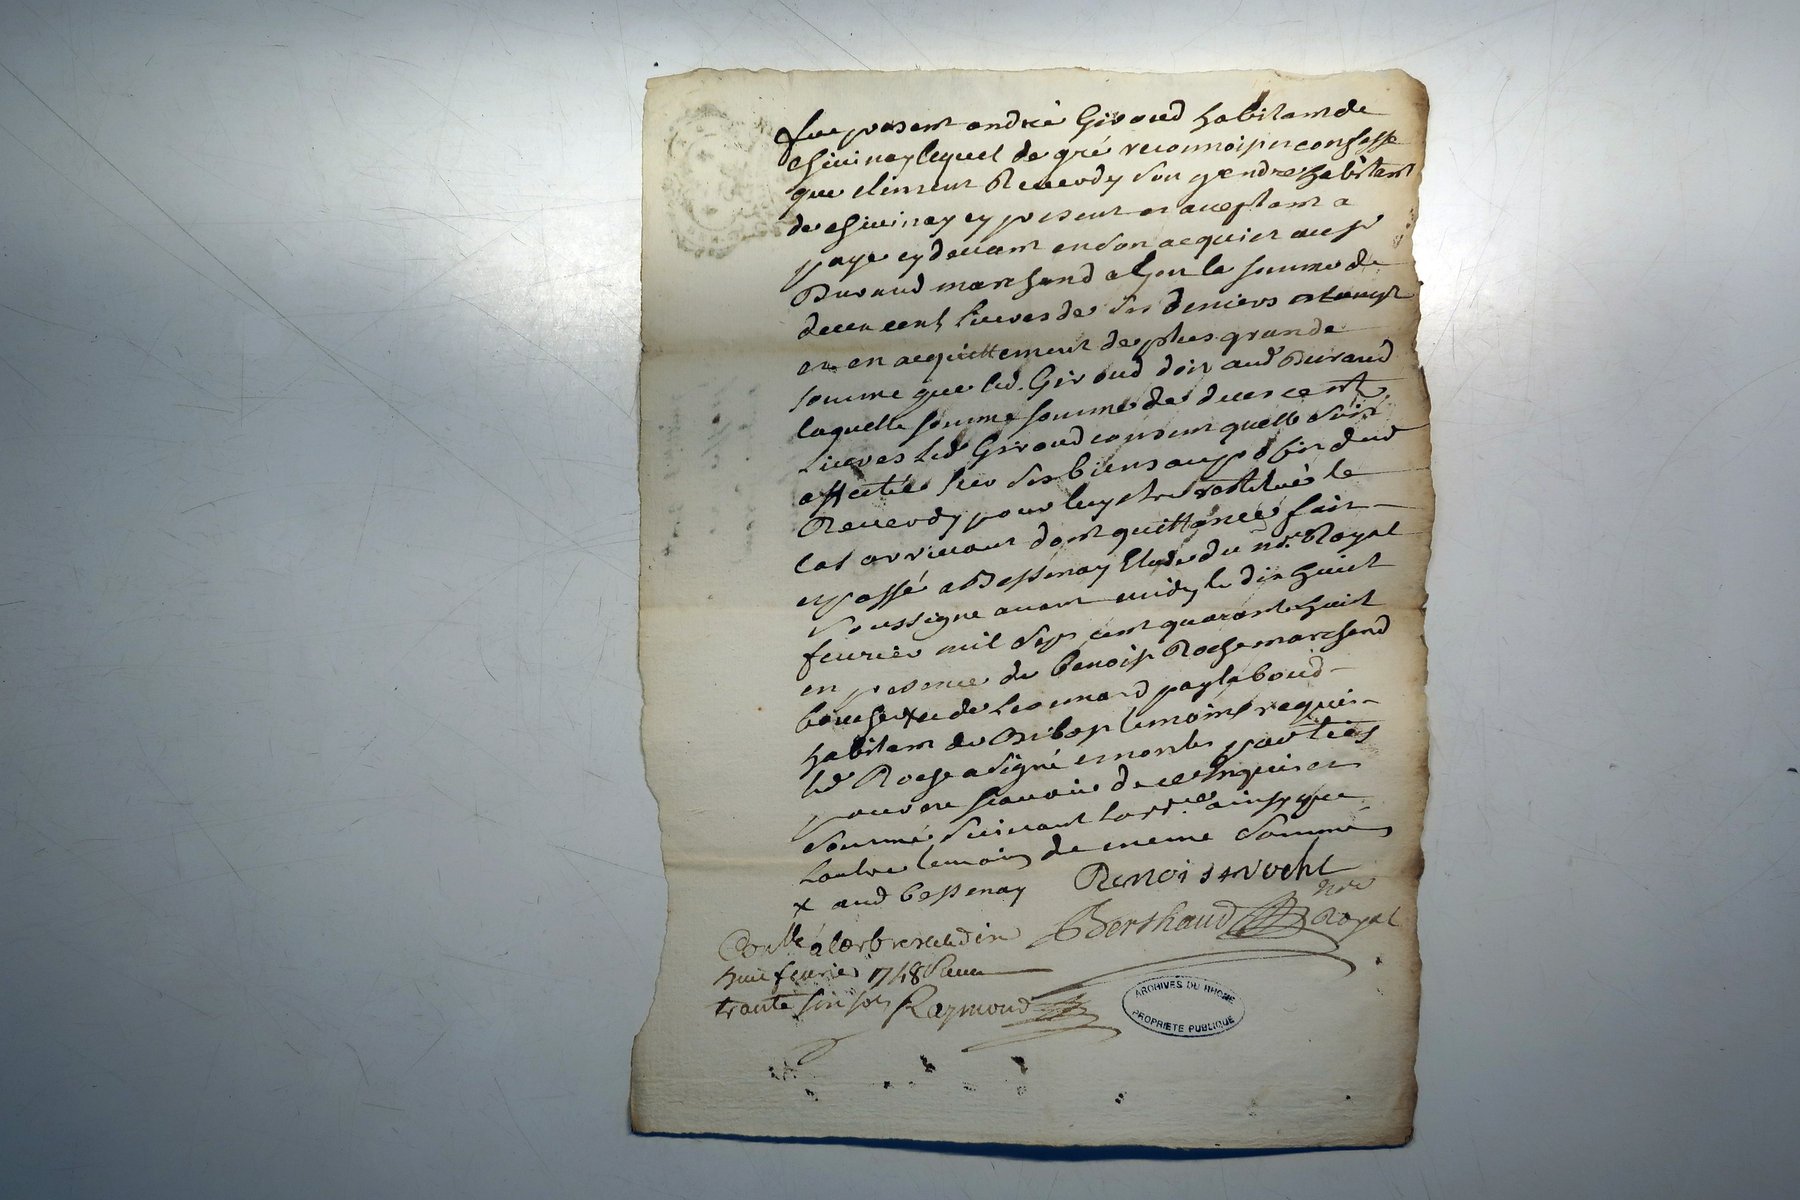 fut present andré Giroud habitant de
chivinay lequel de gré reconnoist et confesse
que climent Reverdy son gendre habitant
de chivinay cy present et aceptant a
payé cy devant en son acquist au sr
Durand marchand a lyon la somme de
deux cent livres de ses deniers et langt
en acquittement de plus grande
somme que led. Giroud doit aud Durand
laquelle somme somme de deux cent
livres led Giroud consent quelle soit
affectée sur ses biens au profit dud
Reverdy pour luy etre restituée le
cas arrivant dont quittance fait
et passé a Bessenay Etude du nre Royal
soussigne avant midy le dix huict
fevrier mil sept cent quarante huict
en presence de benoist Roche marchand
boucher x et de Leonnard
habitant de Bibost temoins requis
led Roche a signé et non les parties
pour ne scavoir de ce enquis et
sommé suivant lord.ce ainsy que
lautre temoins de meme sommé
x aud bessenay Benoist Roche
Berthaud nre
Royal
Con.lé a larbresle le dix
huit fevrier 1748 Receu
trante six sols Raymond
ARCHIVES DU RHONE
PROPRIETE PUBLIQUE